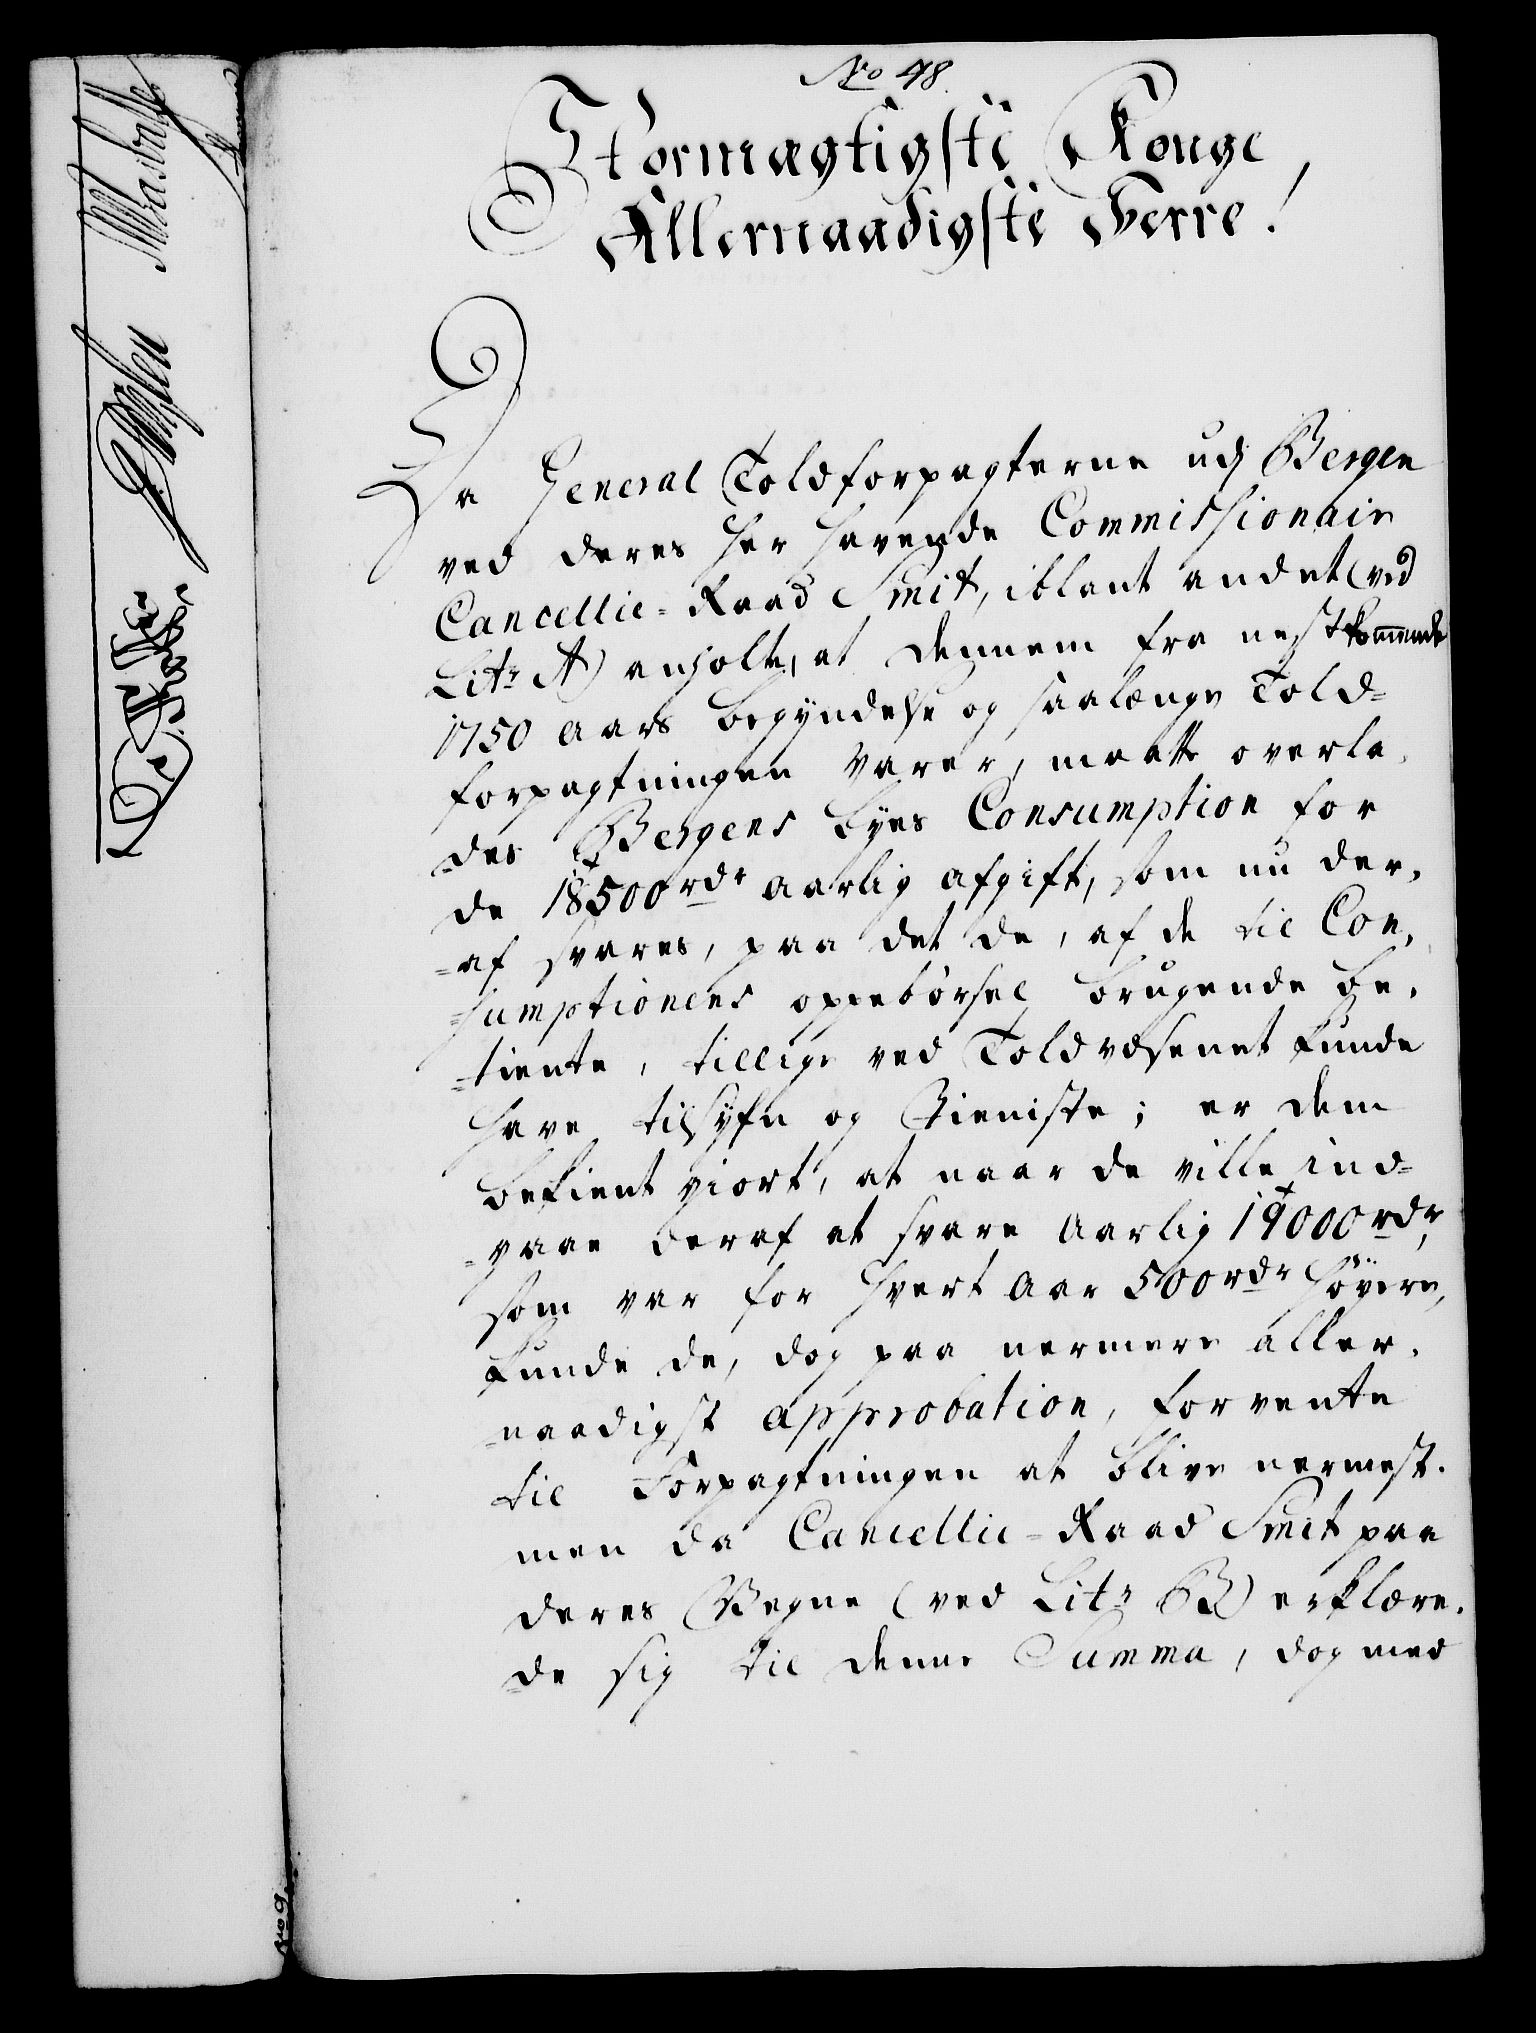 No 48.
Stormægtigste Konge
Allernaadigste Herre!
Da General Toldforpagterne udj Bergen
ved deres her havende Commishionair
Cancellie-Raad Smit, iblant andet (ved
Litr A) anholte, at dennem fra nestkommende
1750 Aars Begyndelse og saalænge Told-
forpagtningen varer, maatte overla-
-des Bergens Byes Consumption for
de 18500 rdr aarlig afgift, som nu der-
-af svares, paa det de, af de til Con-
-sumptionens oppebørsel brugende Be-
-tiente, tillige ved Toldvæsenet kunde
have tilsyhn og Tieniste; er dem
bekient giort, at naar de ville ind-
-gaae deraf at svare Aarlig 19000 rdr,
som var for hvert Aar 500 rdr høyere,
kunde de, dog paa nermere aller-
-naadigst approbation, forvente
til Forpagtningen at blive nermest.
men da Cancellie-Raad Smit paa
deres Vegne (ved Litr B) erklære-
-de sig til denne Summa, dog med